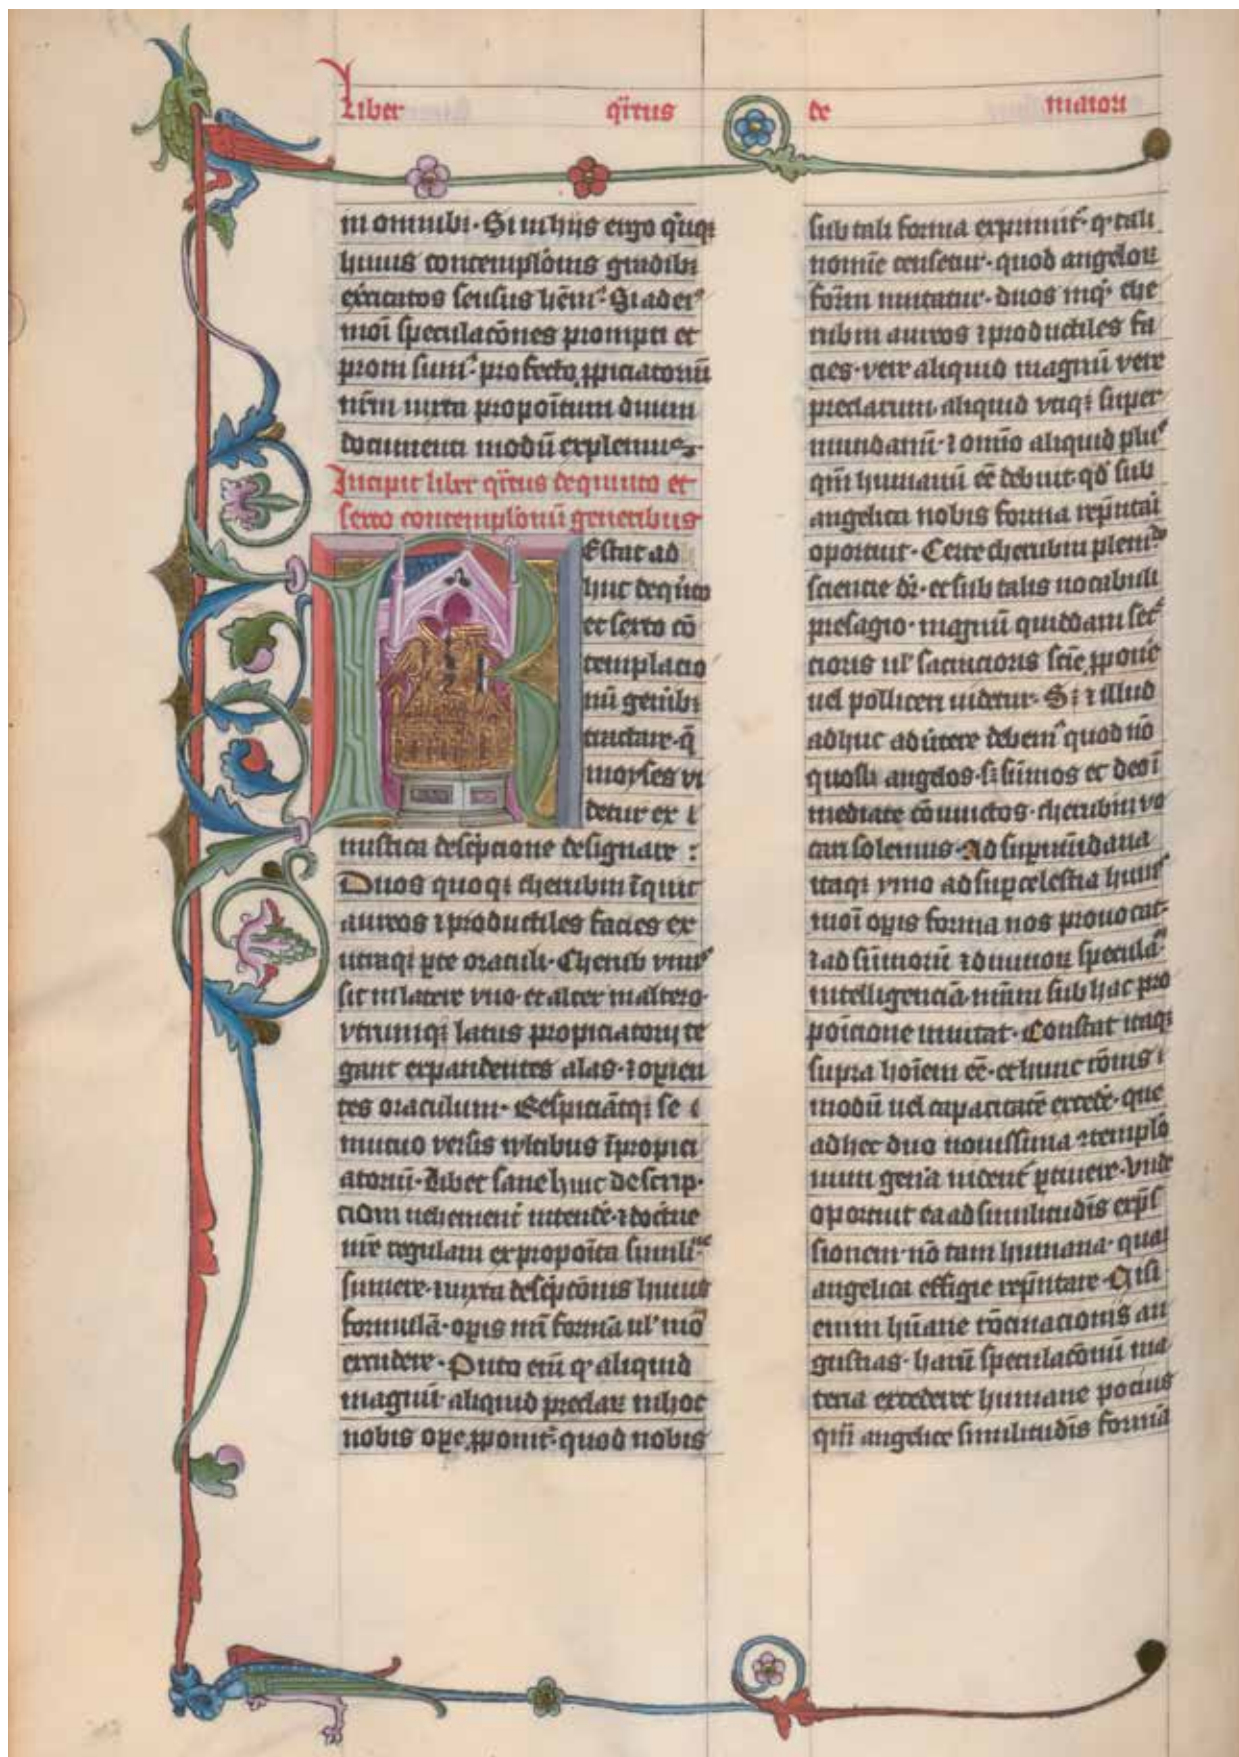 Liber qͥrtus de maiori
in omnibꝫ · Si in hijs ergo qͥnqꝫ
huius contemplōnis gradibꝫ
exercitatos sensus hēmꝰ · Si ad eiꝰ
moī speculacōnes prompti et
proni sumꝰ · profecto ꝓpiciatoriū
nr̄m iuxta propoītum diuini
documenti modū explemus
Incipit liber qͥrtus de quinto et
sexto contemplōnū generibus
Restat ad
huc de qͥnto
et sexto cō
templacio
nū gen̄ibꝫ
tractare · q̄
moyses vi
detur ex i
mistica desc̄pcione designare :
Duos quoqꝫ cherubin īquit
aureos ⁊ productiles facies ex
utraqꝫ ꝑte oraculi · Cherub vnus
sit in latere vno · et alter in altero ·
vtrumqꝫ latus propiciatorij te
gant expandentes alas · ⁊ opien
tes oraculum · Respiciātqꝫ se
mutuo versis vultibus ī propici
atoriū · Libet sane huic descrip ·
cioni uehement̄ intendē · ⁊ doct̄ne
nr̄e regulam ex propoīta simili
sumere · iuxta desc̄pcōnis huius
formulā · opis nr̄i formā ul' mō
excudere · Puto enī qͥ aliquid
magnū · aliquid preclarū in hoc
nobis ope ꝓponit̄ · quod nobis
sub tali forma exprimit̄ · qͥ tali
nomīe censetur · quod angeloꝝ
formā mutatur · duos inqͥ che
rubin aureos ⁊ productiles fa
cies · vere aliquid magnū vere
preclarum · aliquid vtiqꝫ super
mundanū · ⁊ omīo aliquid plusͤ
qm̄ humanū eē debuit · qd̄ sub
angelica nobis forma rep̄ntari
oportuit · Certe cherubin plenitͩo
sciencie dr̄ · et sub talis uocabuli
presagio · magnū quiddam sec̄
cioris ul' sacracioris scīe ꝓponē
uel polliceri uidetur · Sꝫ ⁊ illud
adhuc aduertere debemꝰ quod nō
quoslꝫ angelos · sꝫ sūmos et deo ī
mediate cōiunctos · cherubin vo
cari solemus · Ad suꝑmūdana
itaqꝫ ymo ad suꝑcelestia huiꝰ
moī opis forma nos prouocat ·
⁊ ad sūmoꝝ ⁊ diuinoꝝ speculacōī
intelligenciā nr̄am sub hac pro
poīcione inuitat · Constat itaqꝫ
supra hoīem eē · et hūc rōnis
modū uel capacitatē excedē · que
ad hec duo nouissima ꝯtemplō
num gen̄a uident̄ ꝑtinere · vnde
oportuit ea ad similitudīs exp̄s
sionem · nō tam humana · quaꝫ
angelica effigie rep̄ntare · Nisi
enim hūane rōcinacionis an
gustias · harū speculacōnū ma
teria excederet humane pocius
qm̄ angelice similitudīs formā